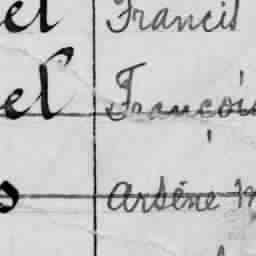 el Francis
el François
s Arsène M